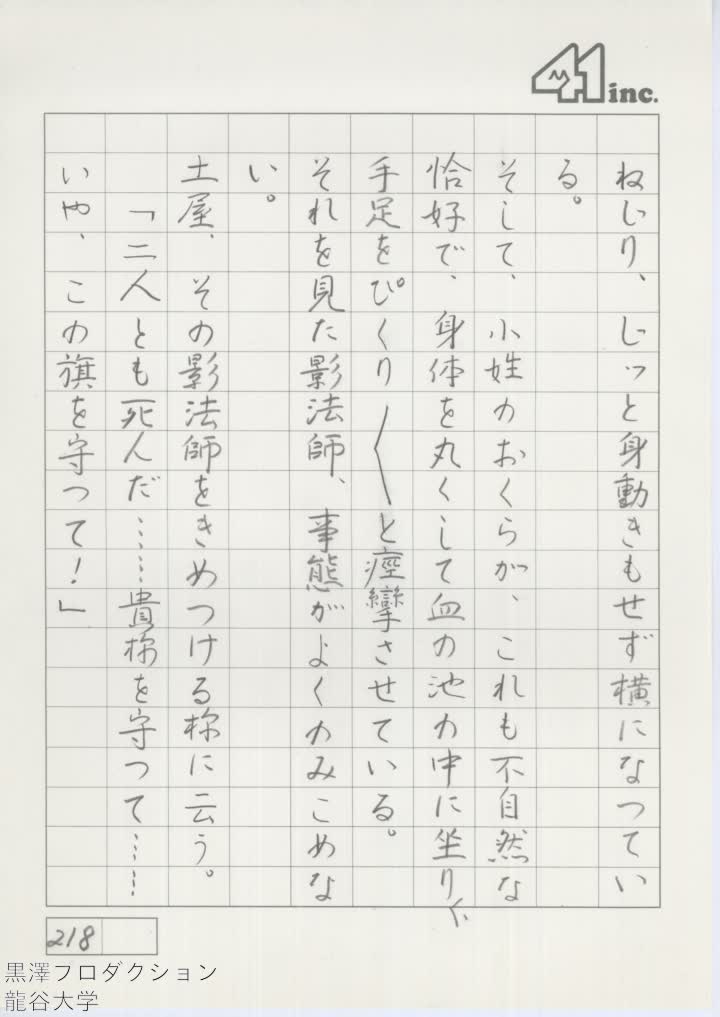 41 inc.
ねじり、じッと身動きもせず横になつてい
る。
そして、小姓のおくらが、これも不自然な
恰好で、身体を丸くして血の池の中に坐り、
手足をぴくり〱と痙攣させている。
それを見た影法師、事態がよくのみこめな
い。
土屋、その影法師をきめつける様に云う。
「二人とも死んだ……貴様を守つて……
いや、この旗を守つて！」
218
黒澤プロダクション
龍谷大学